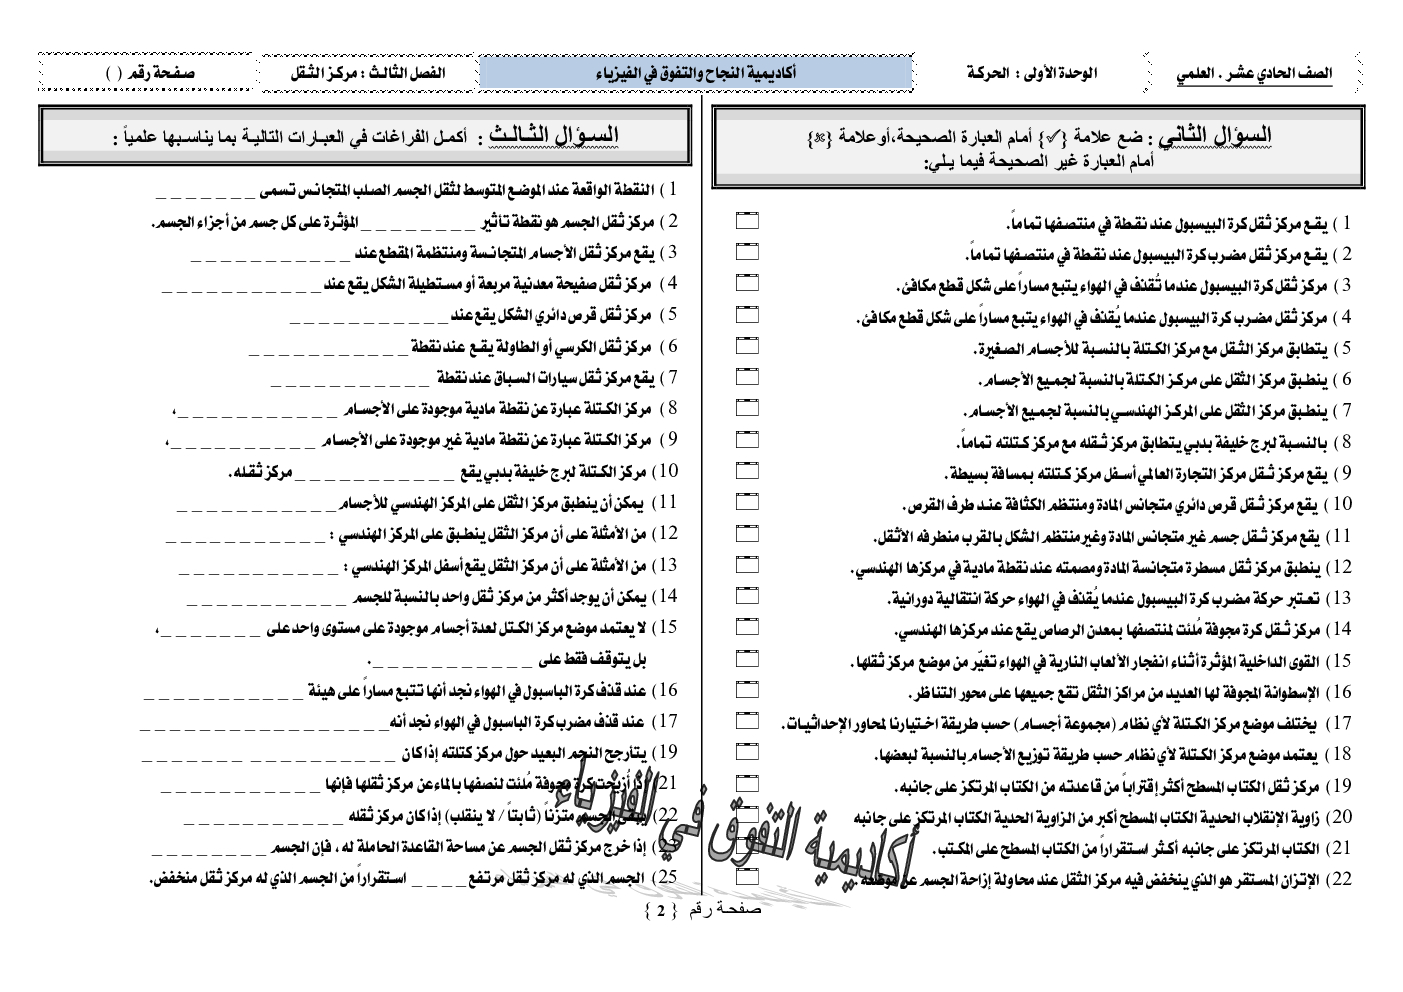 الصف الحادي عشر . العلمي
الوحدة الأولى : الحركة
أكاديمية النجاح والتفوق في الفيزياء
الفصل الثالث : مركز الثقل
صفحة رقم ( )
السؤال الثاني : ضع علامة {✓} أمام العبارة الصحيحة،أوعلامة {✗}
أمام العبارة غير الصحيحة فيما يلي:
1 ) يقع مركز ثقل كرة البيسبول عند نقطة في منتصفها تماماً.
2 ) يقع مركز ثقل مضرب كرة البيسبول عند نقطة في منتصفها تماماً.
3 ) مركز ثقل كرة البيسبول عندما تُقذف في الهواء يتبع مساراً على شكل قطع مكافئ.
4 ) مركز ثقل مضرب كرة البيسبول عندما يُقذف في الهواء يتبع مساراً على شكل قطع مكافئ.
5 ) يتطابق مركز الثقل مع مركز الكتلة بالنسبة للأجسام الصغيرة.
6 ) ينطبق مركز الثقل على مركز الكتلة بالنسبة لجميع الأجسام.
7 ) ينطبق مركز الثقل على المركز الهندسي بالنسبة لجميع الأجسام.
8 ) بالنسبة لبرج خليفة بدبي يتطابق مركز ثقله مع مركز كتلته تماماً.
9 ) يقع مركز ثقل مركز التجارة العالمي أسفل مركز كتلته بمسافة بسيطة.
10 ) يقع مركز ثقل قرص دائري متجانس المادة ومنتظم الكثافة عند طرف القرص.
11 ) يقع مركز ثقل جسم غير متجانس المادة وغير منتظم الشكل بالقرب منطرفه الأثقل.
12 ) ينطبق مركز ثقل مسطرة متجانسة المادة ومصمته عند نقطة مادية في مركزها الهندسي.
13 ) تعتبر حركة مضرب كرة البيسبول عندما يُقذف في الهواء حركة انتقالية دورانية.
14 ) مركز ثقل كرة مجوفة مُلئت لمنتصفها بمعدن الرصاص يقع عند مركزها الهندسي.
15 ) القوى الداخلية المؤثرة أثناء انفجار الألعاب النارية في الهواء تغيّر من موضع مركز ثقلها.
16 ) الإسطوانة المجوفة لها العديد من مراكز الثقل تقع جميعها على محور التناظر.
17 ) يختلف موضع مركز الكتلة لأي نظام (مجموعة أجسام) حسب طريقة اختيارنا لمحاور الإحداثيات.
18 ) يعتمد موضع مركز الكتلة لأي نظام حسب طريقة توزيع الأجسام بالنسبة لبعضها.
19 ) مركز ثقل الكتاب المسطح أكثر إقتراباً من قاعدته من الكتاب المرتكز على جانبه.
20 ) زاوية الإنقلاب الحدية الكتاب المسطح أكبر من الزاوية الحدية الكتاب المرتكز على جانبه
21 ) الكتاب المرتكز على جانبه أكثر استقراراً من الكتاب المسطح على المكتب.
22 ) الإتزان المستقر هو الذي ينخفض فيه مركز الثقل عند محاولة إزاحة الجسم عن موضعه.
السؤال الثالث : أكمل الفراغات في العبارات التالية بما يناسبها علمياً :
1 ) النقطة الواقعة عند الموضع المتوسط لثقل الجسم الصلب المتجانس تسمى _ _ _ _ _ _ _
2 ) مركز ثقل الجسم هو نقطة تأثير _ _ _ _ _ _ _ _ المؤثرة على كل جسم من أجزاء الجسم.
3 ) يقع مركز ثقل الأجسام المتجانسة ومنتظمة المقطع عند _ _ _ _ _ _ _ _ _ _ _
4 ) مركز ثقل صفيحة معدنية مربعة أو مستطيلة الشكل يقع عند _ _ _ _ _ _ _ _ _ _ _
5 ) مركز ثقل قرص دائري الشكل يقع عند _ _ _ _ _ _ _ _ _ _ _
6 ) مركز ثقل الكرسي أو الطاولة يقع عند نقطة _ _ _ _ _ _ _ _ _ _ _
7 ) يقع مركز ثقل سيارات السباق عند نقطة _ _ _ _ _ _ _ _ _ _ _
8 ) مركز الكتلة عبارة عن نقطة مادية موجودة على الأجسام _ _ _ _ _ _ _ _ _ _ _ ،
9 ) مركز الكتلة عبارة عن نقطة مادية غير موجودة على الأجسام _ _ _ _ _ _ _ _ _ _ ،
10 ) مركز الكتلة لبرج خليفة بدبي يقع _ _ _ _ _ _ _ _ _ _ _ مركز ثقله.
11 ) يمكن أن ينطبق مركز الثقل على المركز الهندسي للأجسام _ _ _ _ _ _ _ _ _ _ _
12 ) من الأمثلة على أن مركز الثقل ينطبق على المركز الهندسي : _ _ _ _ _ _ _ _ _ _ _
13 ) من الأمثلة على أن مركز الثقل يقع أسفل المركز الهندسي : _ _ _ _ _ _ _ _ _ _ _
14 ) يمكن أن يوجد أكثر من مركز ثقل واحد بالنسبة للجسم _ _ _ _ _ _ _ _ _ _ _
15 ) لا يعتمد موضع مركز الكتل لعدة أجسام موجودة على مستوى واحد على _ _ _ _ _ _ _ ،
بل يتوقف فقط على _ _ _ _ _ _ _ _ _ _ _ .
16 ) عند قذف كرة الباسبول في الهواء نجد أنها تتبع مساراً على هيئة _ _ _ _ _ _ _ _ _ _ _
17 ) عند قذف مضرب كرة الباسبول في الهواء نجد أنه _ _ _ _ _ _ _ _ _ _ _ _ _ _ _ _ _
19 ) يتأرجح النجم البعيد حول مركز كتلته إذا كان _ _ _ _ _ _ _ _ _ _
21 ) إذا أزيحت كرة مجوفة مُلئت لنصفها بالماء عن مركز ثقلها فإنها _ _ _ _ _ _ _ _ _ _ _
22 ) يبقى الجسم متزناً (ثابتاً / لا ينقلب) إذا كان مركز ثقله _ _ _ _ _ _ _ _ _ _ _
23 ) إذا خرج مركز ثقل الجسم عن مساحة القاعدة الحاملة له ، فإن الجسم _ _ _ _ _ _ _ _
25 ) الجسم الذي له مركز ثقل مرتفع _ _ _ _ استقراراً من الجسم الذي له مركز ثقل منخفض.
أكاديمية التفوق في الفيزياء
صفحة رقم { 2 }